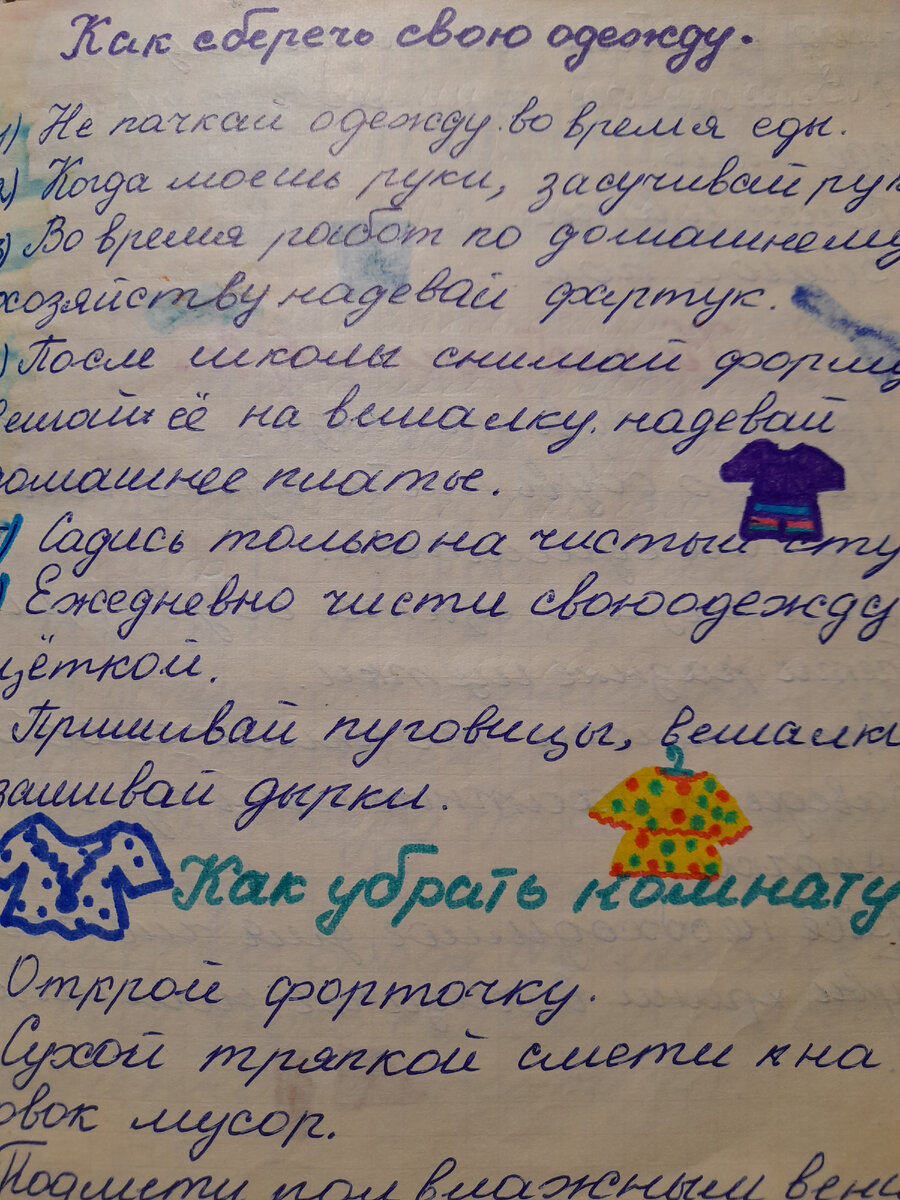 Как сберечь свою одежду.
1) Не пачкай одежду во время еды.
2) Когда моешь руки, засучивай рук
3) Во время работ по домашнему
хозяйству надевай фартук.
) После школы снимай форму
вешай её на вешалку. надевай
домашнее платье.
) Садись только на чистый сту
) Ежедневно чисти свою одежду
щёткой.
Пришивай пуговицы, вешалки
зашивай дырки.
Как убрать комнату
Открой форточку.
Сухой тряпкой смети на
овок мусор.
Подмети пол влажным вени